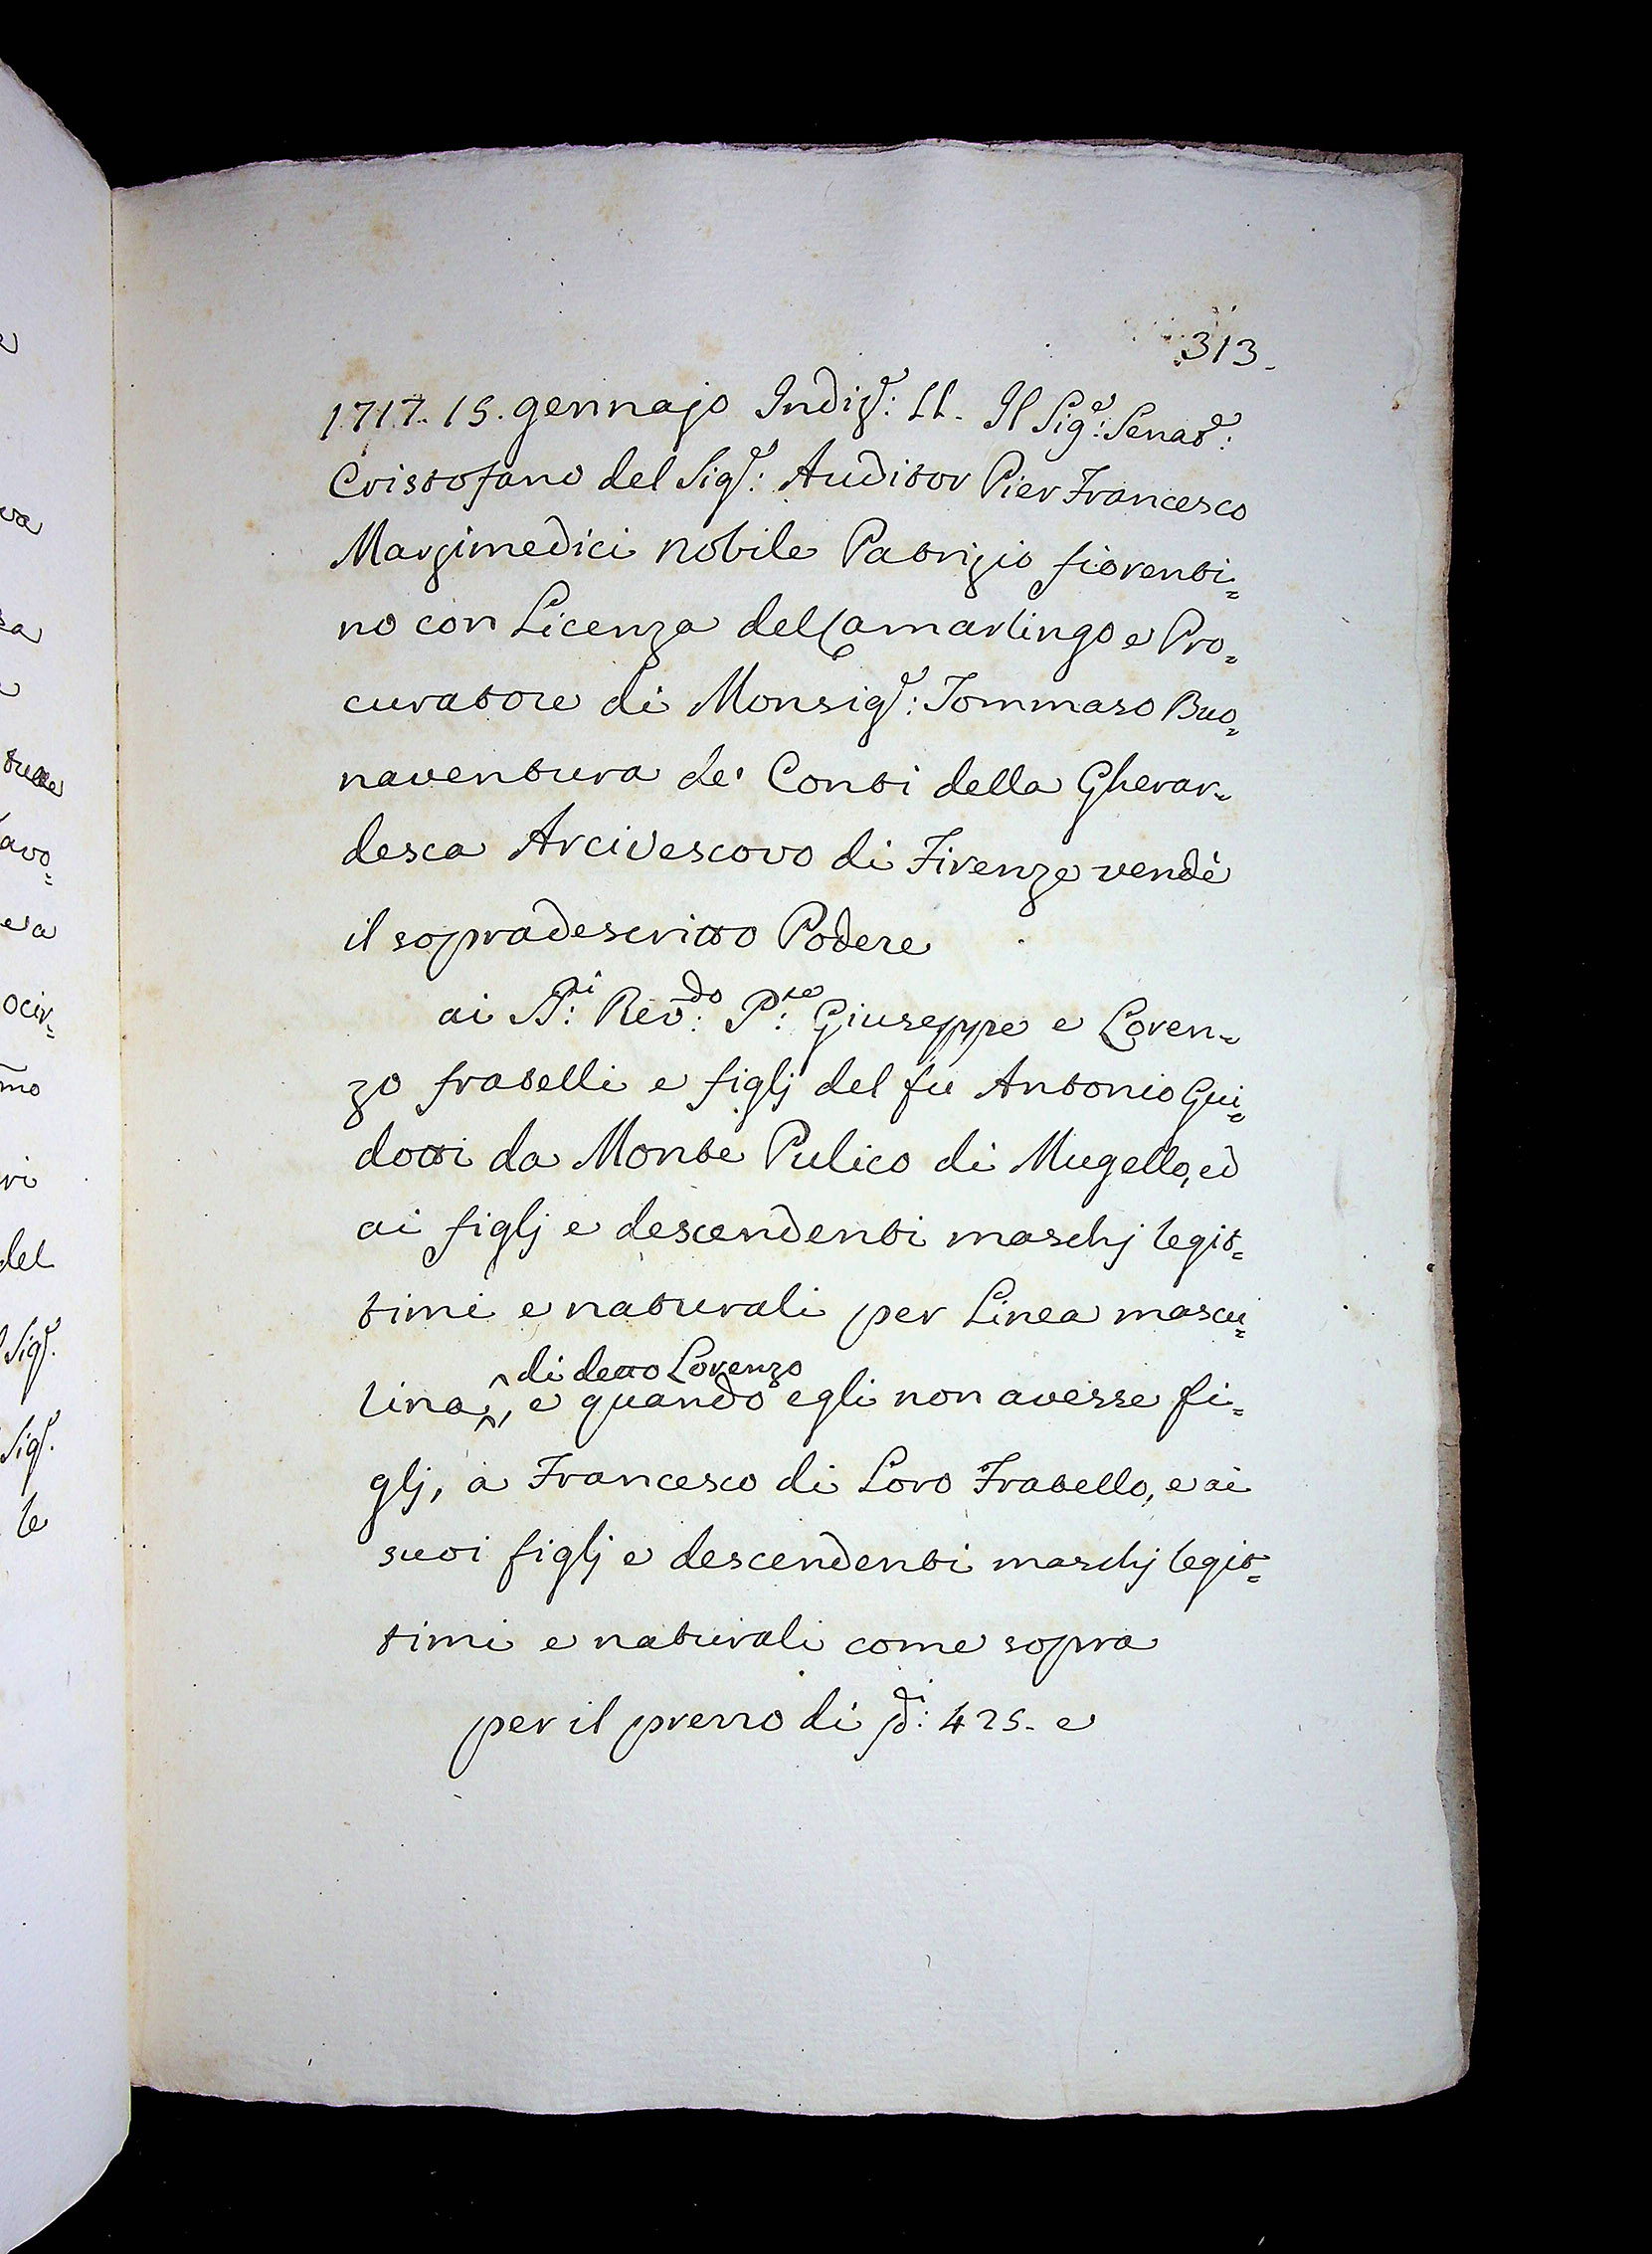 313.
1717. 15. gennajo Indiz.e: 11. Il Sig.e: Senat.e:
Cristofano del Sig.e: Auditor Pier Francesco
Marzimedici nobile Patrizio fiorenti=
no con Licenza del Camarlingo e Pro=
curatore di Monsig.e: Tommaso Buo=
naventura de' Conti della Gherar=
desca Arcivescovo di Firenze vendè
il sopradescritto Podere
ai Rev.do: P.te: Giuseppe e Loren=
zo fratelli e figlj del fù Antonio Gui=
dotti da Monte Pulico di Mugello, ed
ai figlj e descendenti maschj legit=
timi e naturali per Linea mascu=
di detto Lorenzo
lina, e quando egli non avesse fi=
glj, à Francesco di Loro Fratello, e ai
suoi figlj e descendenti maschj legit=
timi e naturali come sopra
per il prezzo di 425. e
va
del
Sig.
Sig.
le